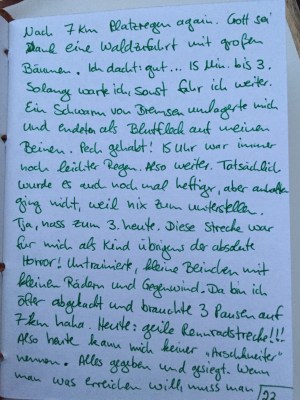 Nach 7 km Platzregen again. Gott sei
Dank eine Waldzufahrt mit großen
Bäumen. Ich dacht: gut... 15 Min. bis 3.
Solang warte ich, sonst fahr ich weiter.
Ein Schwarm von Bremsen umlagerte mich
und endeten als Blutfleck auf meinen
Beinen. Pech gehabt! 15 Uhr war immer
noch leichter Regen. Also weiter. Tatsächlich
wurde es auch noch mal heftiger, aber anhalten
ging nicht, weil nix zum unterstellen.
Tja, nass zum 3. heute. Diese Strecke war
für mich als Kind übrigens der absolute
Horror! Untrainierte, kleine Beinchen mit
kleinen Rädern und Gegenwind. Da bin ich
öfter abgekackt und brauchte 3 Pausen auf
7 km haha. Heute: geile Rennradstrecke!!!
Also heute kann mich keiner "Arschkneifer"
nennen. Alles gegeben und gesiegt. Wenn
man was erreichen will, muss man
22